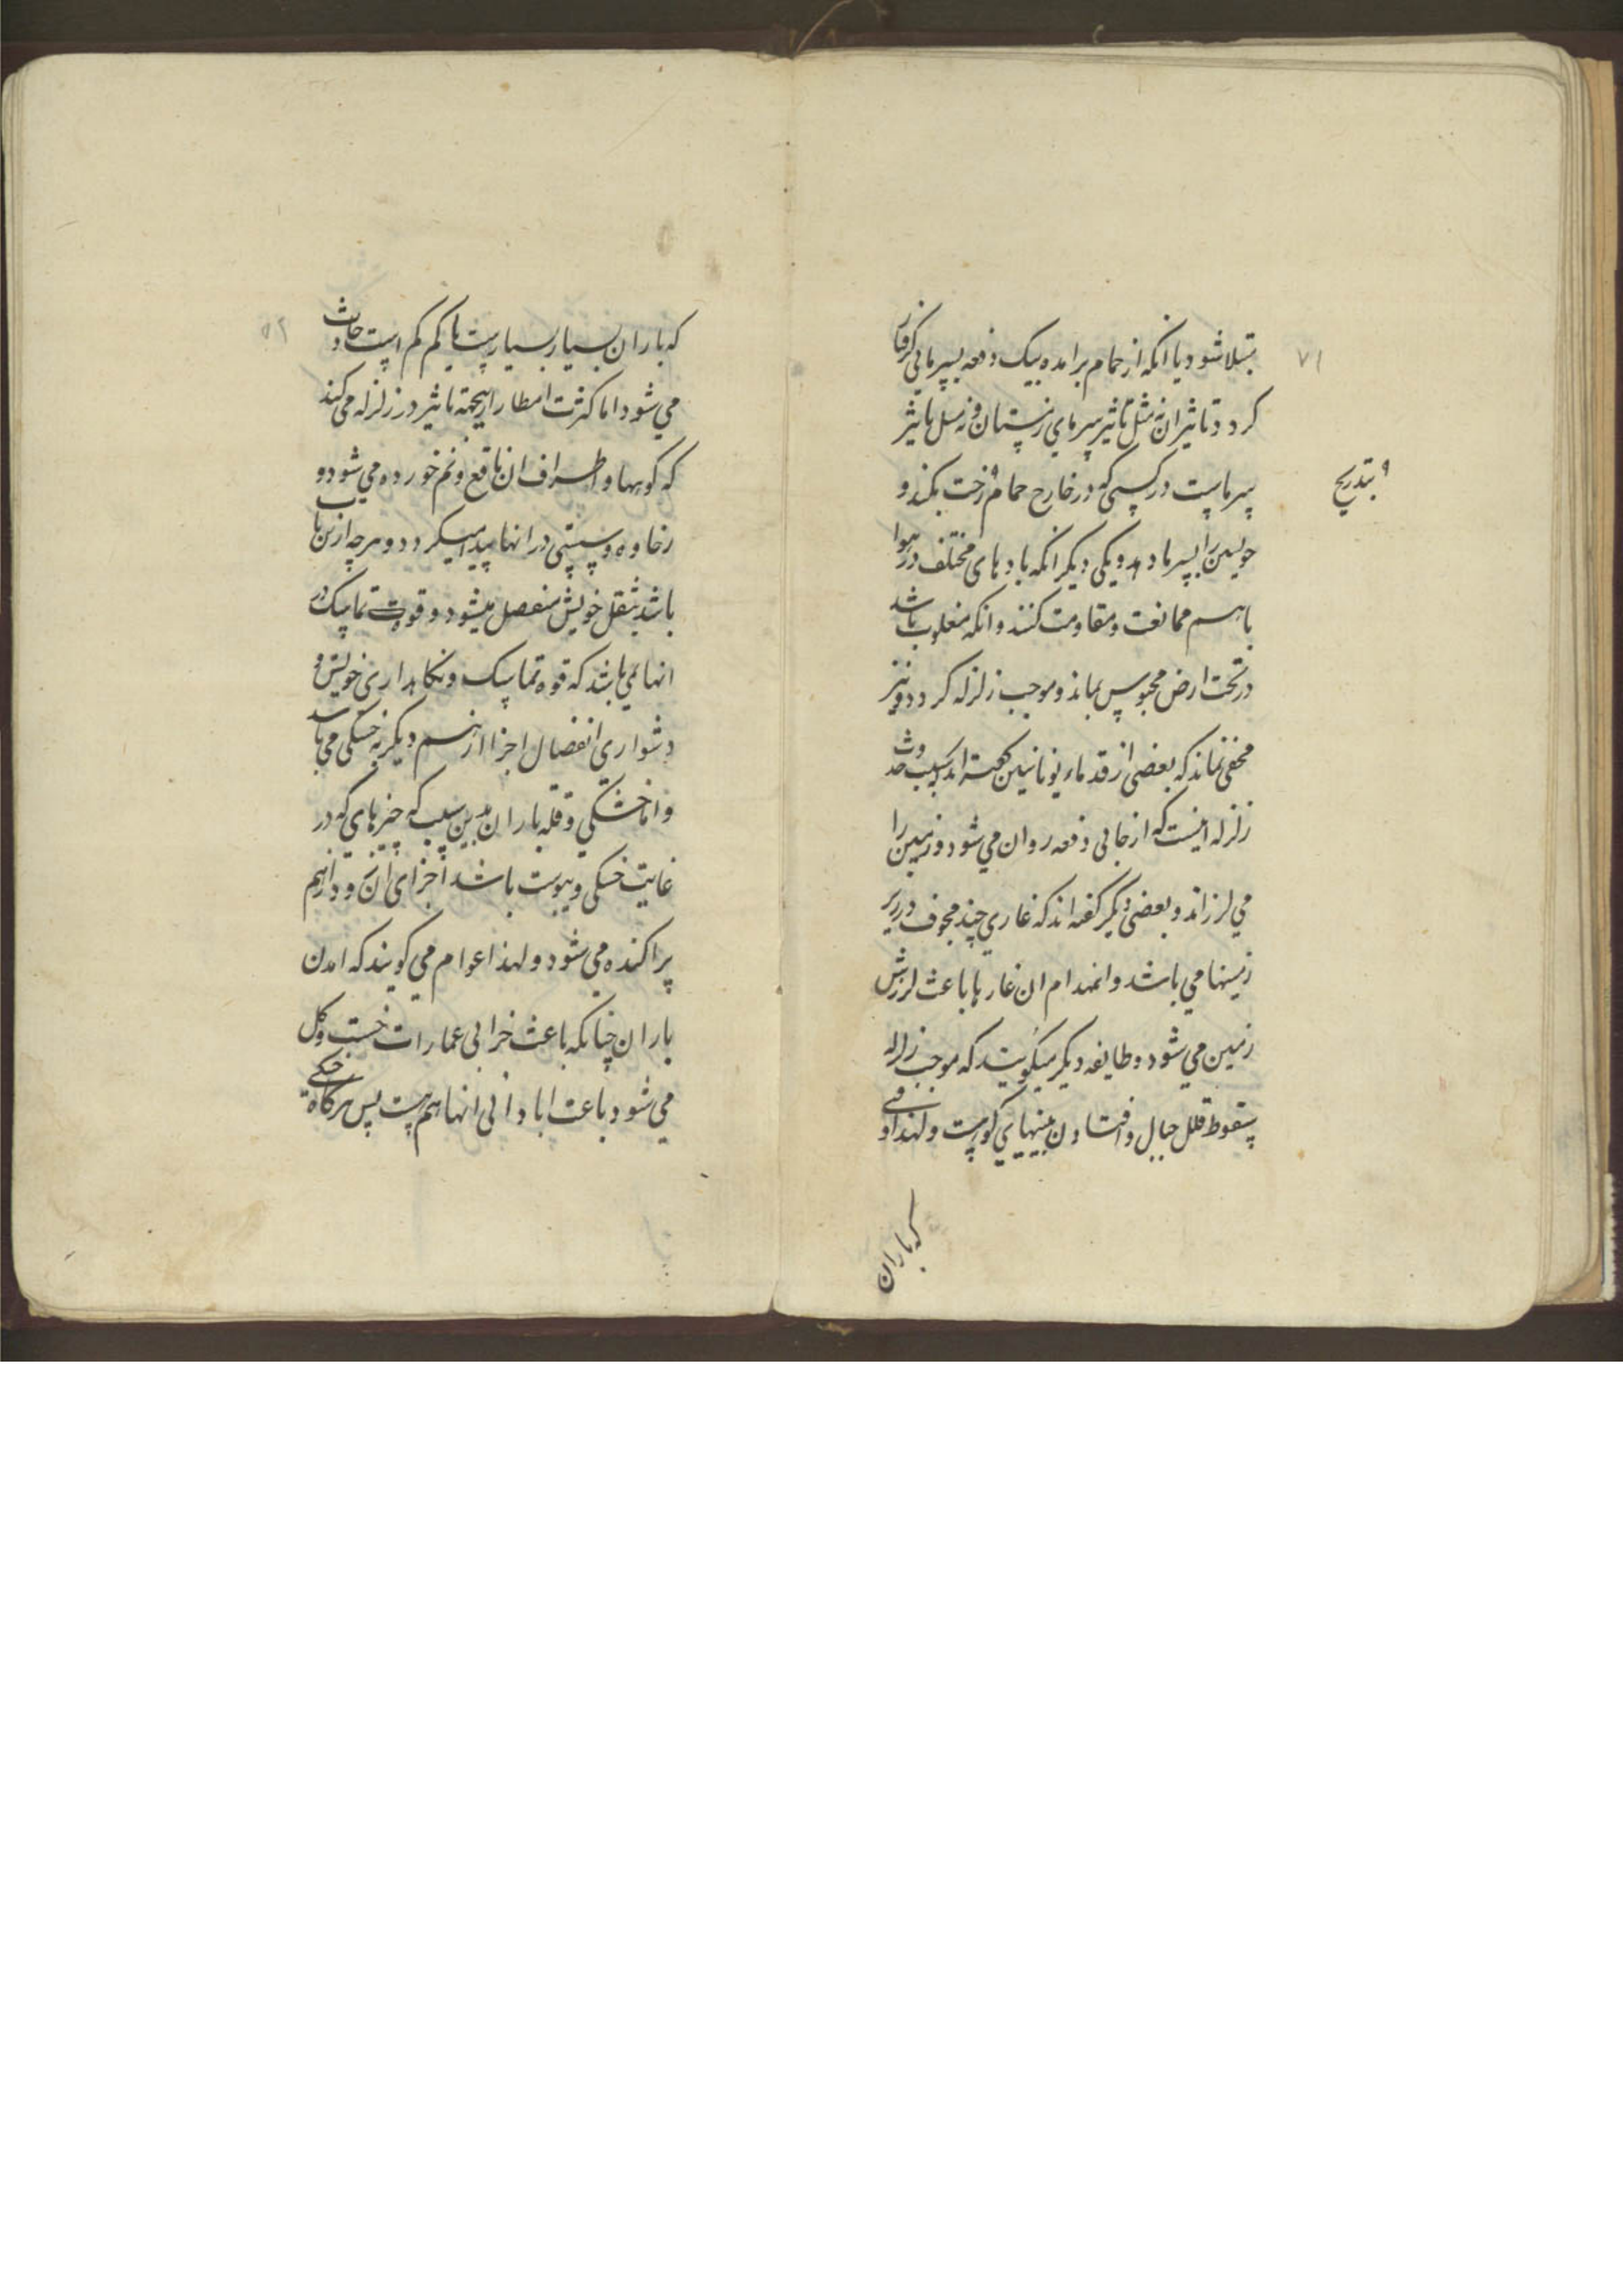 ۷۱
مبتلا شود یا انکه از حمام برامده بیک دفعه بسرمائی گرفتار
کردد تاثیر ان نه مثل تاثیر سرمای زمستان و نه مثل تاثیر
سرماست در کسی که در خارج حمام رخت بکند و
بتدریج
خویشتن را بسرما دهد و یکی دیکر انکه بادهای مختلف در هوا
باهم ممانعت و مقاومت کنند و انکه مغلوب باشد
در تحت ارض محبوس بماند و موجب زلزله کردد و نیز
مخفی نماند که بعضی از قدماء یونانیین کفته اند که سبب حدوث
زلزله اینست که از جائی دفعه روان می شود و زمین را
می لرزاند و بعضی دیکر کفته اند که غاری چند مجوف در زیر
زمینها می باشد و انهدام ان غارها باعث لرزش
زمین می شود و طایفه دیکر میکویند که موجب زلزله
سقوط قلل جبال و افتادن بینهای کوه است و لهذا وقتی
که باران
که باران بسیار بسیارست یا کم کم است حادث
می شود اما کثرت امطار ازینجهته تاثیر در زلزله می کند
که کوهها و اطراف ان ناقع و نم خورده می شود و
رخاوه و سستی در انها پیدا میکردد و هرچه ازین ها
باشد بثقل خویش منفصل میشود و قوت تماسک در
انها نمی باشد که قوه تماسک و نکاهداری خویش و
دشواری انفصال اجزا از هم دیکر به خشکی می باشد
و اما خشکی و قله باران به این سبب که چیزهای که در
غایت خشکی و یبوست باشد اجزای ان زود از هم
پراکنده می شود و لهذا عوام می کویند که امدن
باران چنانکه باعث خرابی عمارات خشت و کل
می شود باعث ابادانی انها هم هست پس هرکاه خشکی